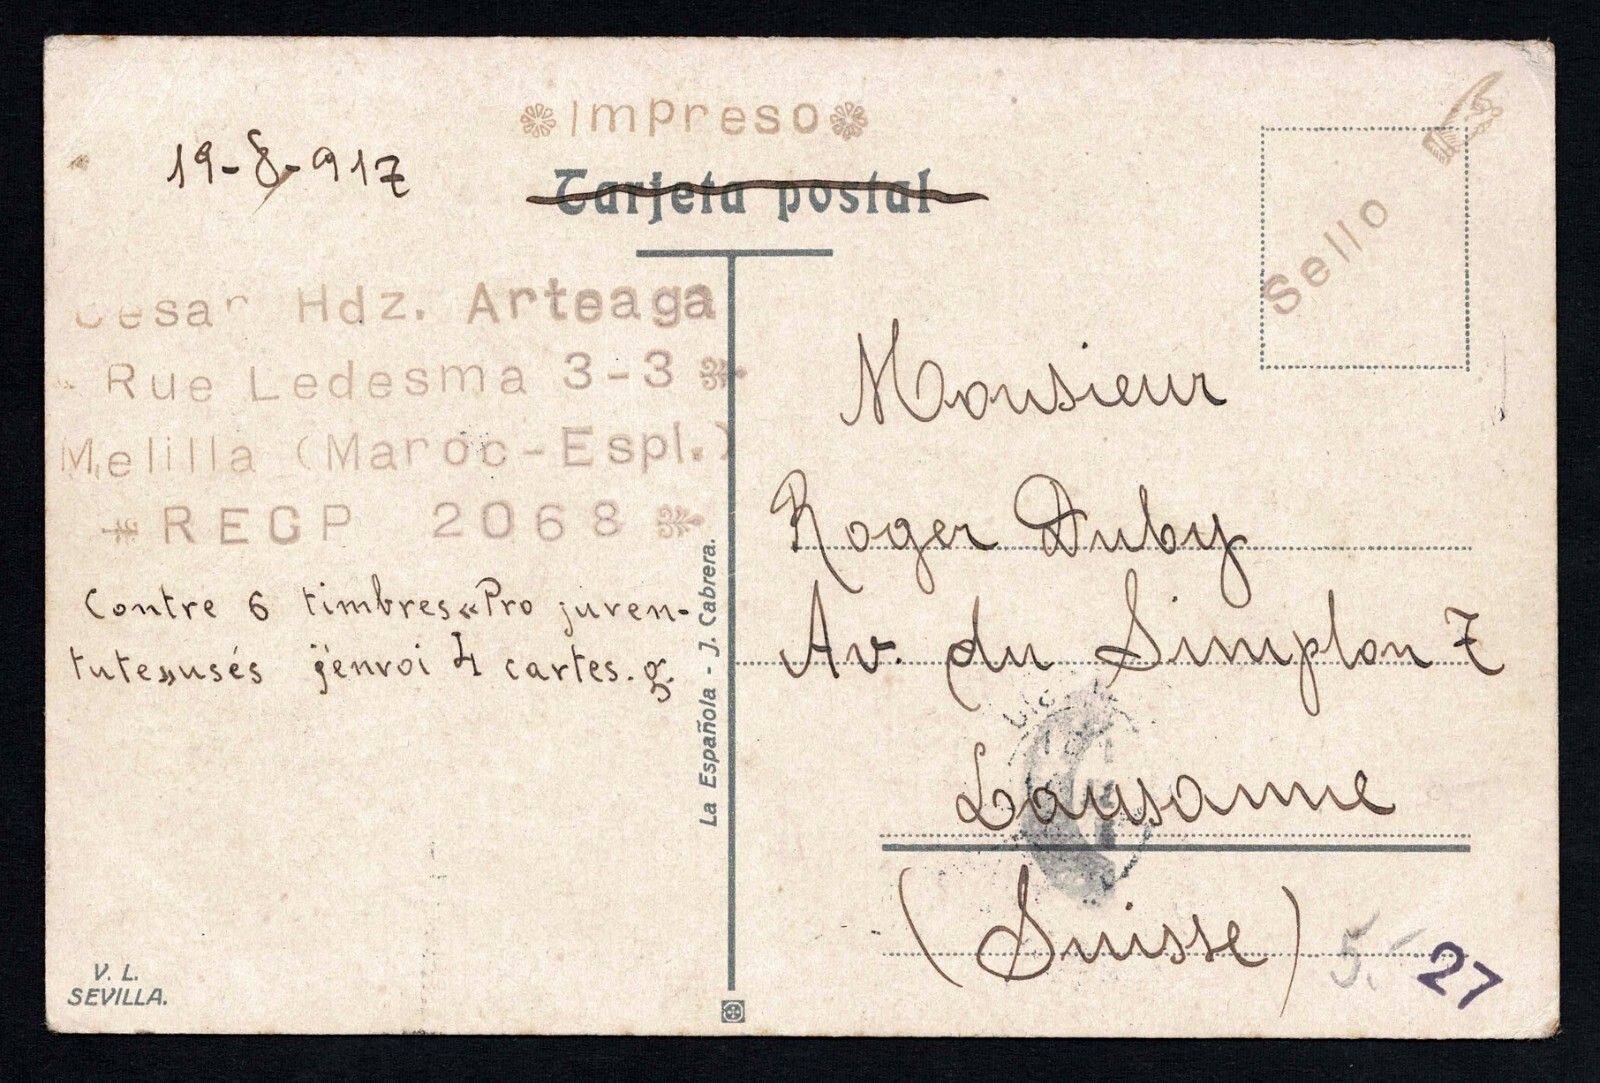 Impreso
19-8-917
Tarjeta postal
Sello
Cesar Hdz. Arteaga
Rue Ledesma 3-3
Melilla (Maroc-Espl.)
REGP 2068
Contre 6 timbres «Pro juven-
tute» usés j'envoi 4 cartes. g.
La Española - J. Cabrera.
V. L.
SEVILLA.
Monsieur
Roger Duby
Av. du Simplon 7
Lausanne
(Suisse)
5.-
27